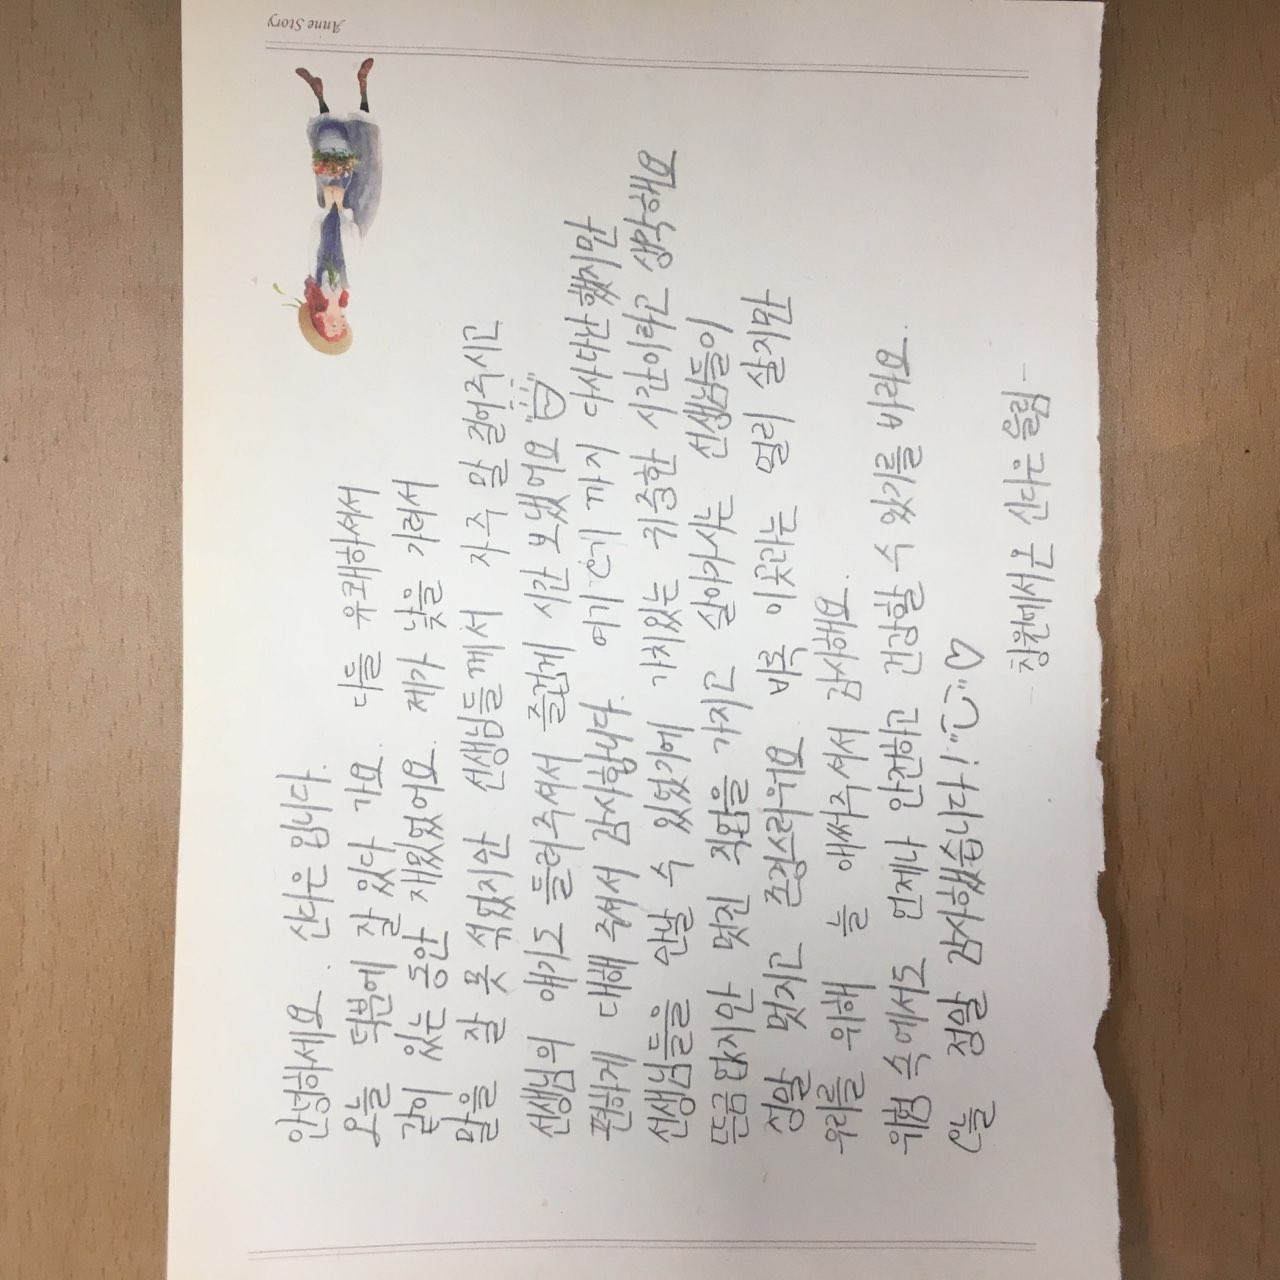 안녕하세요. 신다은 입니다.
오늘 덕분에 잘 있다 가요. 다들 유쾌하셔서
같이 있는 동안 재밌었어요. 제가 낯을 가려서
말을 잘 못 섞었지만 선생님들께서 자주 말 걸어주시고
선생님의 얘기도 들려주셔서 즐겁게 시간 보냈어요
편하게 대해 주셔서 감사합니다. 여기 오기 까지 다사다난 했지만
선생님들을 만날 수 있었기에 가치있는 귀중한 시간이라고 생각해요
뜬금 없지만 멋진 직업을 가지고 살아가시는 선생님들이
정말 멋지고 존경스러워요 비록 이곳라는 멀리 살지만
우리를 위해 늘 애써주셔서 감사해요.
위험 속에서도 언제나 안전하고 건강할 수 있기를 바라요.
오늘 정말 감사했습니다!
-창원에서 온 신다은 올림-
Anne Story